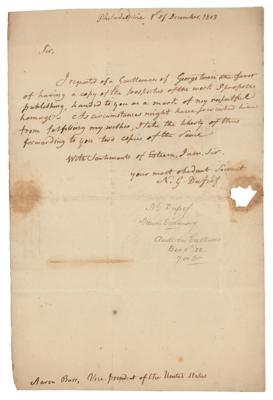 Philadelphia 1st of December, 1803
Sir,
I requested of a Gentleman of Georgetown the favor
of having a copy of the prospectus of the work I propose
publishing, handed to you as a mark of my respectful
homage. As circumstances might have prevented him
from fulfilling my wishes, I take the liberty of thus
forwarding to you two copies of the same
With Sentiments of Esteem, I am, Sir,
your most obedient Servant
N. G. Dufief
N G Dufief
Aaron Burr, Vice president of the United States